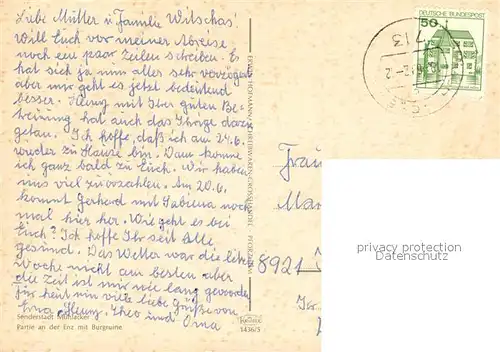 Liebe Mutter u Familie Witschas!
Will Euch vor meiner Abreise
noch ein paar Zeilen schreiben. Es
hat sich ja nun alles sehr verzögert
aber mir geht es jetzt bedeutend
besser. Heinz mit Ihrer guten Be-
treuung hat auch das Übrige dazu
getan. Ich hoffe, daß ich am 24.6.
wieder zu Hause bin. Dann komme
ich ganz bald zu Euch. Wir haben
uns viel zu erzählen. Am 20.6.
kommt Gerhard mit Sabina noch
mal hier her. Wie geht es bei
Euch? Ich hoffe Ihr seit Alle
gesund. Das Wetter war die letzte
Woche nicht am besten aber
die Zeit ist mir nie lang geworden
für heut nun viele liebe Grüße von
Erna, Heinz, Theo und Oma
Senderstadt Mühlacker
Partie an der Enz mit Burgruine
ERWIN HOFMANN · SCHREIBWAREN-GROSSHANDEL · PFORZHEIM
1436/5
DEUTSCHE BUNDESPOST
50
713
Frau
Mar
8921
privacy protection
Datenschutz